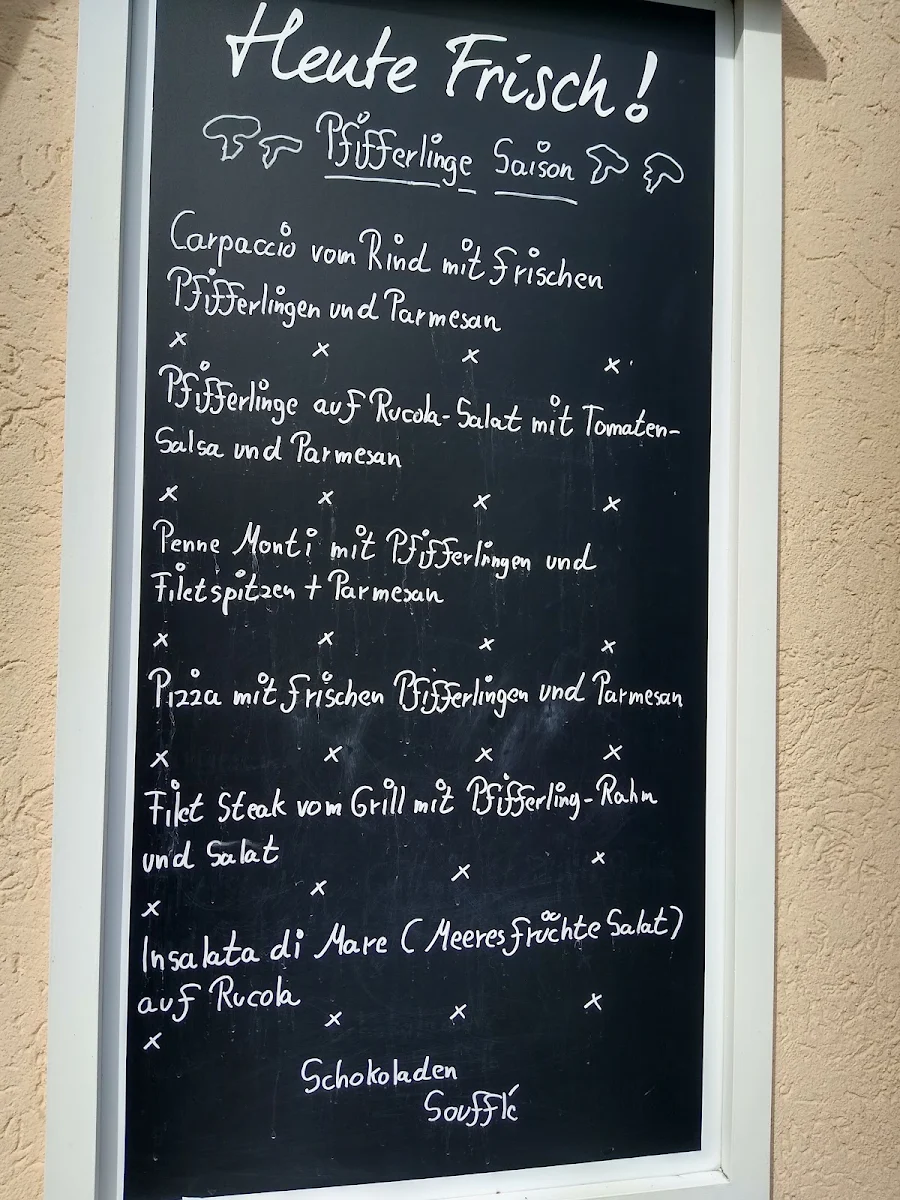 Heute Frisch!
Pfifferlinge Saison
Carpaccio vom Rind mit frischen
Pfifferlingen und Parmesan
x x x x
Pfifferlinge auf Rucola-Salat mit Tomaten-
Salsa und Parmesan
x x x x
Penne Monti mit Pfifferlingen und
Filetspitzen + Parmesan
x x x x
Pizza mit frischen Pfifferlingen und Parmesan
x x x x
Filet Steak vom Grill mit Pfifferling-Rahm
und Salat
x x x x
Insalata di Mare (Meeresfrüchte Salat)
auf Rucola
x x x x
Schokoladen
Soufflé